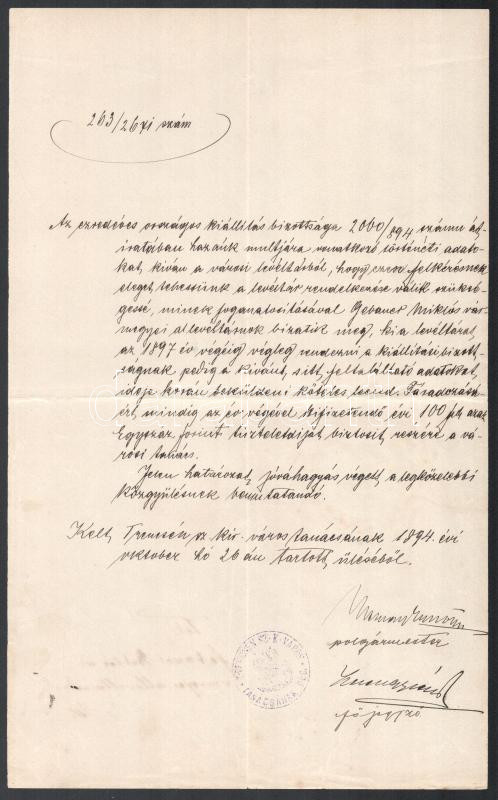 263/2671 szám
Az ezredéves országos kiállítás bizottsága 2000/894 számu át-
iratában hazánk multjára vonatkozó történeti adato-
kat, kiván a városi levéltárból, hogy ezen felkérésnek
eleget tehessünk a levéltár rendelkezése válik szüksé-
gessé, minek foganatositásával Gebauer Miklós vár-
megyei allevéltárnok bizatik meg, ki a levéltárat,
az 1897 év végéig végleg rendezni a kiállitási bizott-
ságnak pedig a kivánt, s itt feltalálható adatokat,
ideje korán beküldeni köteles lesz. Fáradozásá-
ért mindig az év végével kifizetendő évi 100 frt azaz
Egyszáz forint tiszteletdijat, biztosit, részére a vá-
rosi tanács.
Jelen határozat, jóváhagyás végett, a legközelebbi
közgyülésnek bemutatandó.
Kelt, Trencsén sz. kir. város tanácsának 1894. évi
oktober hó 26 án tartott, üléséből.
polgármester
főjegyző